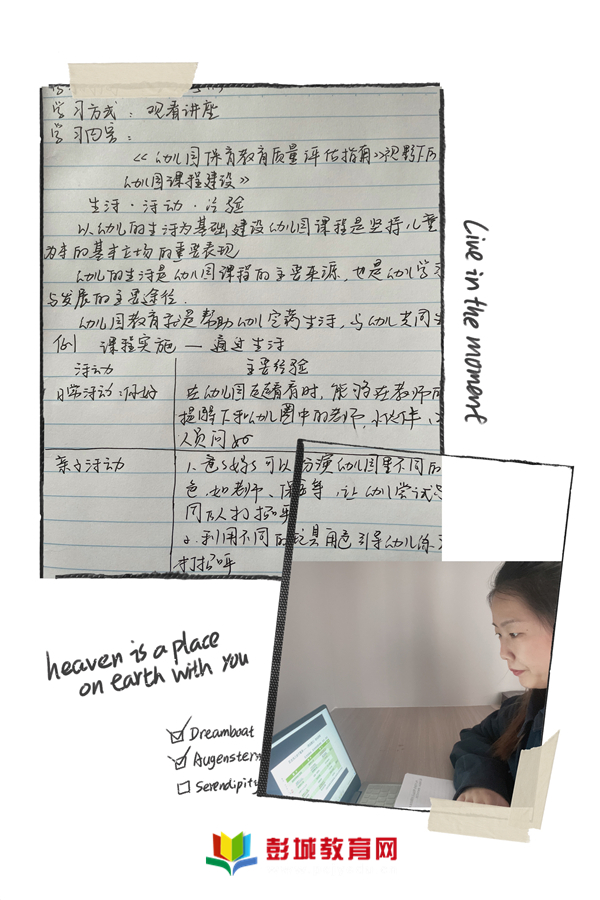 学习方式：观看讲座
学习内容：
《幼儿园保育教育质量评估指南》视野下的
幼儿园课程建设》
生活·活动·经验
以幼儿的生活为基础建设幼儿园课程是坚持儿童
为本的基本立场的重要表现
幼儿的生活是幼儿园课程的主要来源，也是幼儿学习
与发展的主要途径.
幼儿园教育就是帮助幼儿完善生活，与幼儿共同生
例 课程实施 — 通过生活
活动 主要经验
日常活动：你好 在幼儿园 有时，能够在教师的
提醒下和幼儿园中的老师、小伙伴、
人员问好
亲子活动 1.爸爸妈妈可以扮演幼儿园里不同的
色，如老师、保安等，让幼儿尝试与
同的人打招呼
2.利用不同的玩具角色引导幼儿练习
打招呼
Live in the moment
heaven is a place
on earth with you
Dreamboat
Augenstern
Serendipity
彭城教育网